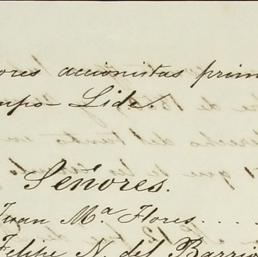 ores accionistas prim
mpo-Lide.
Señores.
Juan Mª Flores....
Felipe N. del Barrio